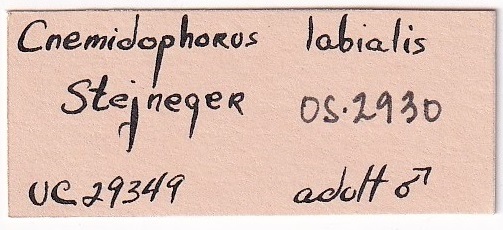 Cnemidophorus labialis
Stejneger OS.2930
UC 29349 adult ♂